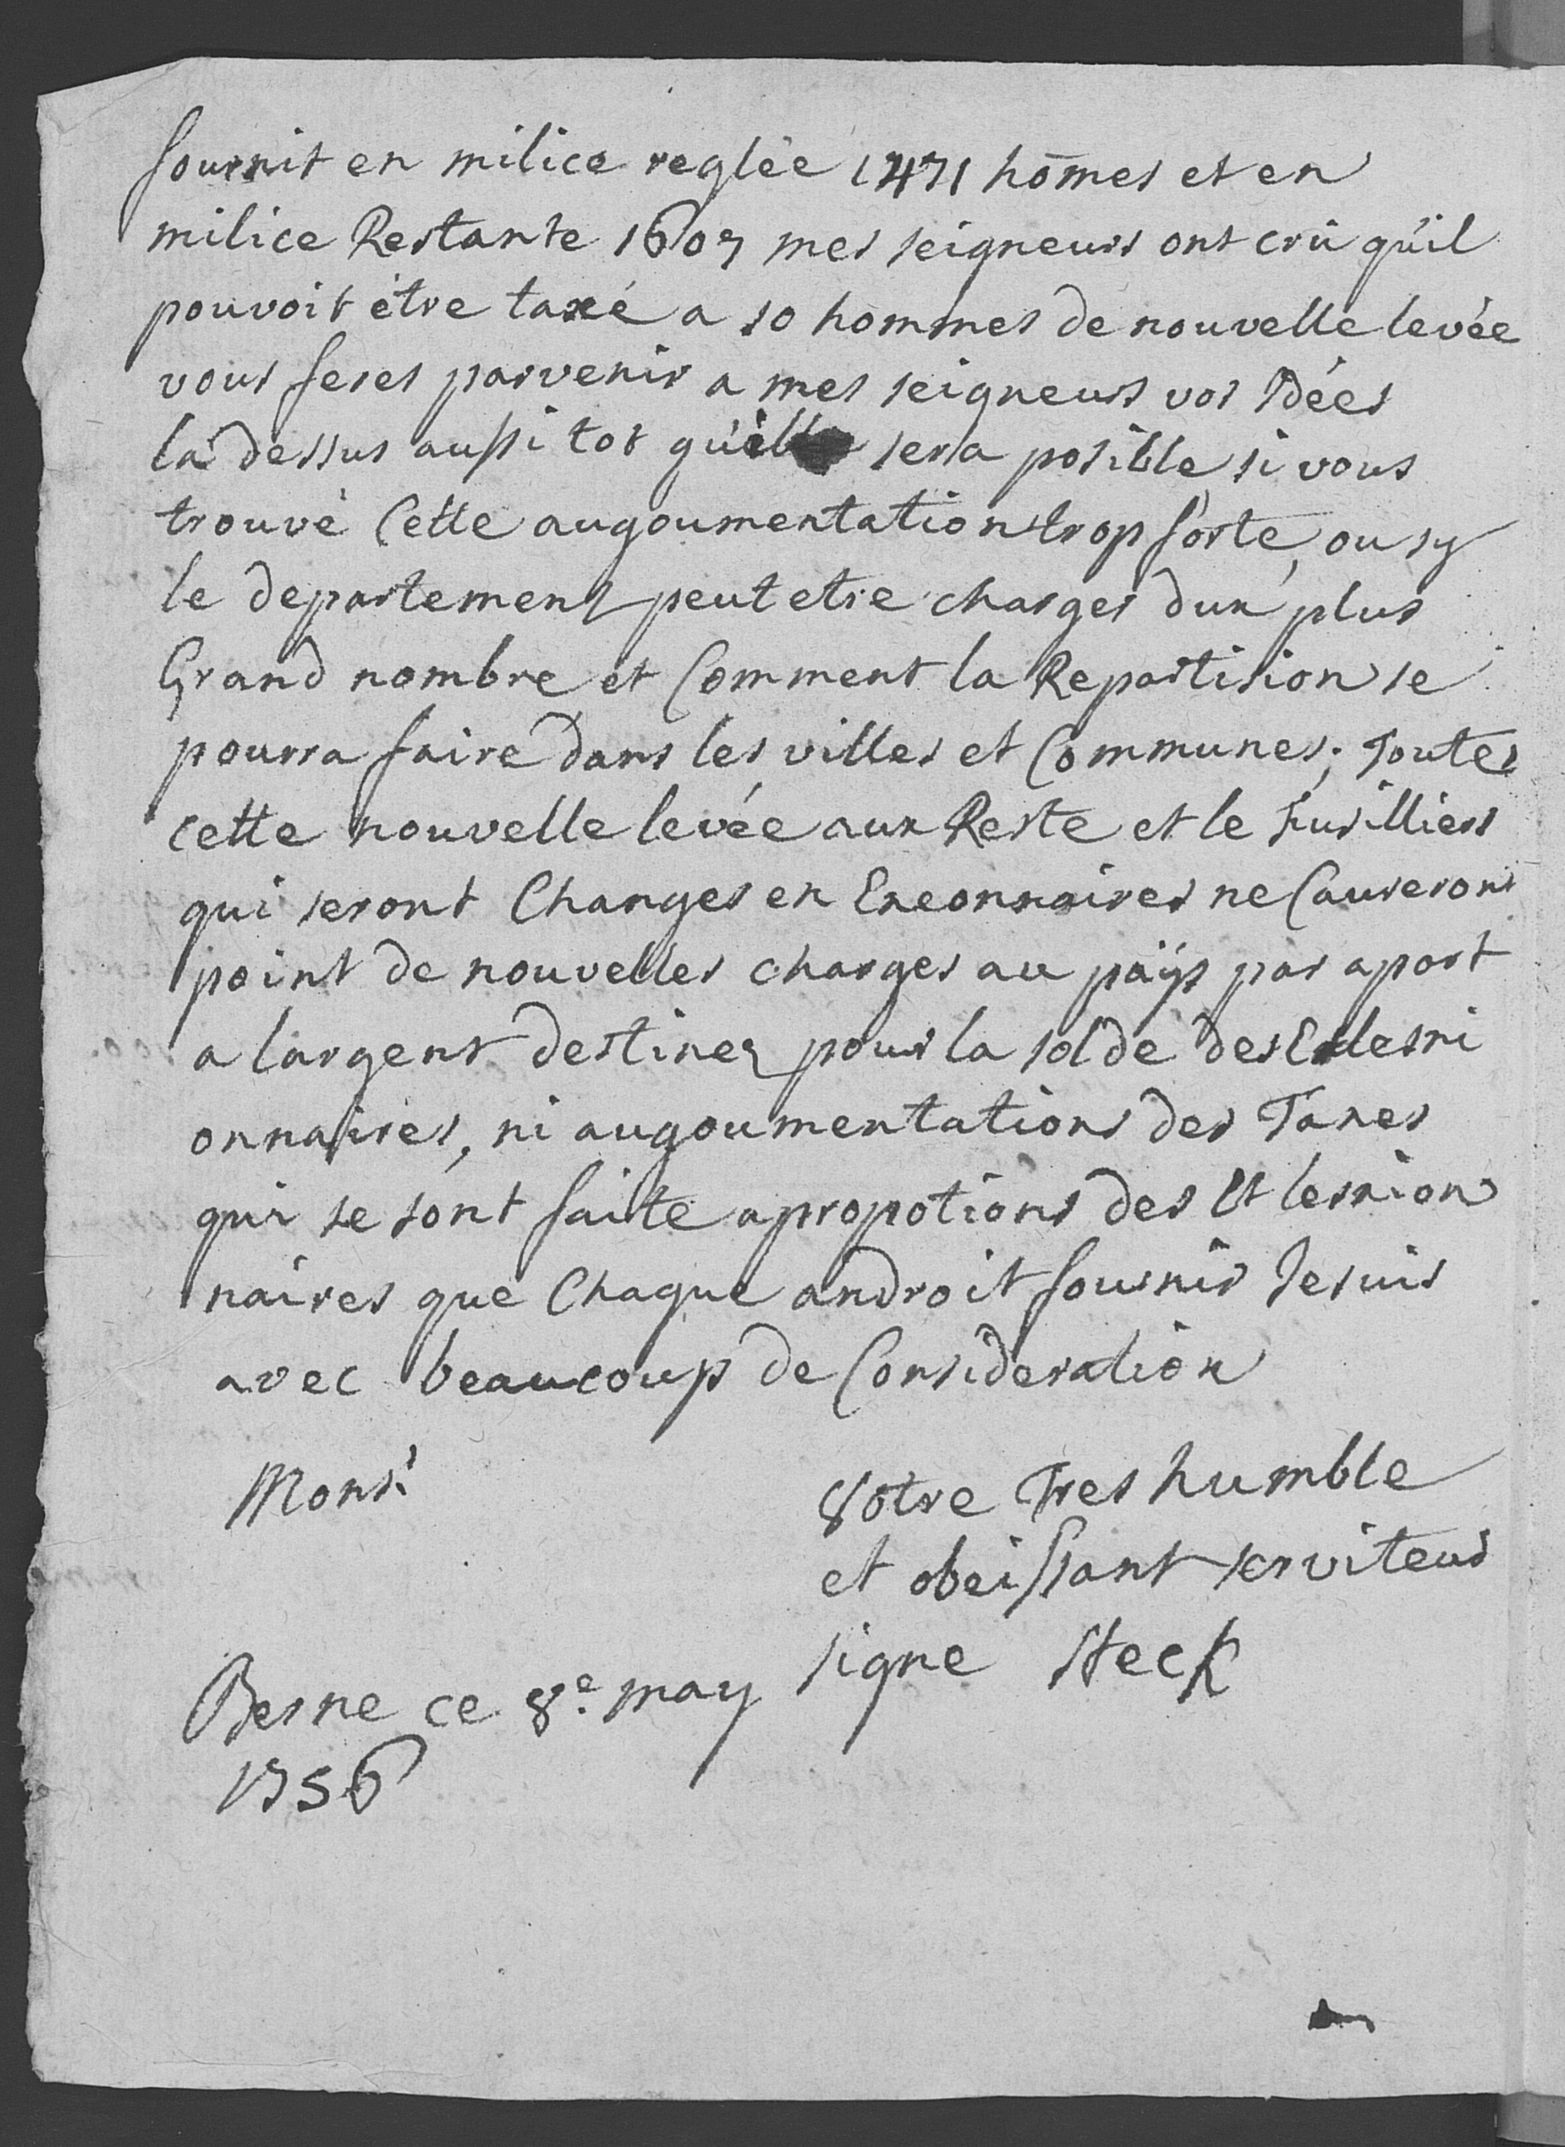 fournit en milice reglée 1471 hom̄es et en
milice Restante 1607 mes seigneurs ont crû qu'il
pouvoit étre taxé a 50 hommes de nouvelle levée
vous feres parvenir a mes seigneurs vos Idées
la dessus aussi tot qu'il sera posible si vous
trouvé Cette augoumentation trop forte, ou sy
le departement peut etre charger dun plus
Grand nombre et Comment la Repartision se
pourra faire dans les villes et Communes; Toutes
cette nouvelle levée aux Reste et le fusilliers
qui seront Changes en ne Causeront
point de nouvelles charges au païs par aport
a largent destinez pour la solde des
onnaires, ni augoumentations des Taxes
qui se sont faite a propotions des
naires que Chaque androit fournir Je suis
avec beaucoup de Consideration
Monsr
Votre Tres humble
et obeissant serviteur
signe Steck
Berne ce 8e. may
1756